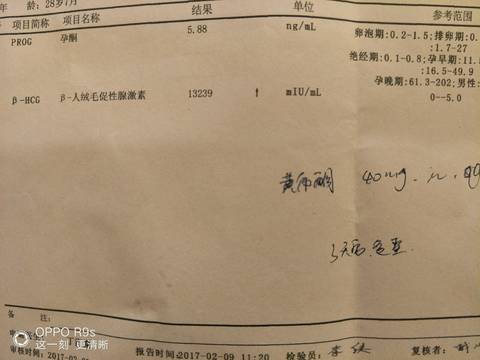 年 龄:28岁7月
号 项目简称 项目名称 结果 单位 参考范围
PROG 孕酮 5.88 ng/mL 卵泡期:0.2-1.5;排卵期:0.
:1.7-27
绝经期:0.1-0.8;孕早期:11.
:16.5-49.9
孕晚期:61.3-202;男性:
β-HCG β-人绒毛促性腺激素 13239 ↑ mIU/mL 0--5.0
黄体酮 40mg
3天后复查
备 注:
OPPO R9s
这一刻 更清晰
审核时间:2017-02- 报告时间:2017-02-09 11:20 检验员: 复核者: